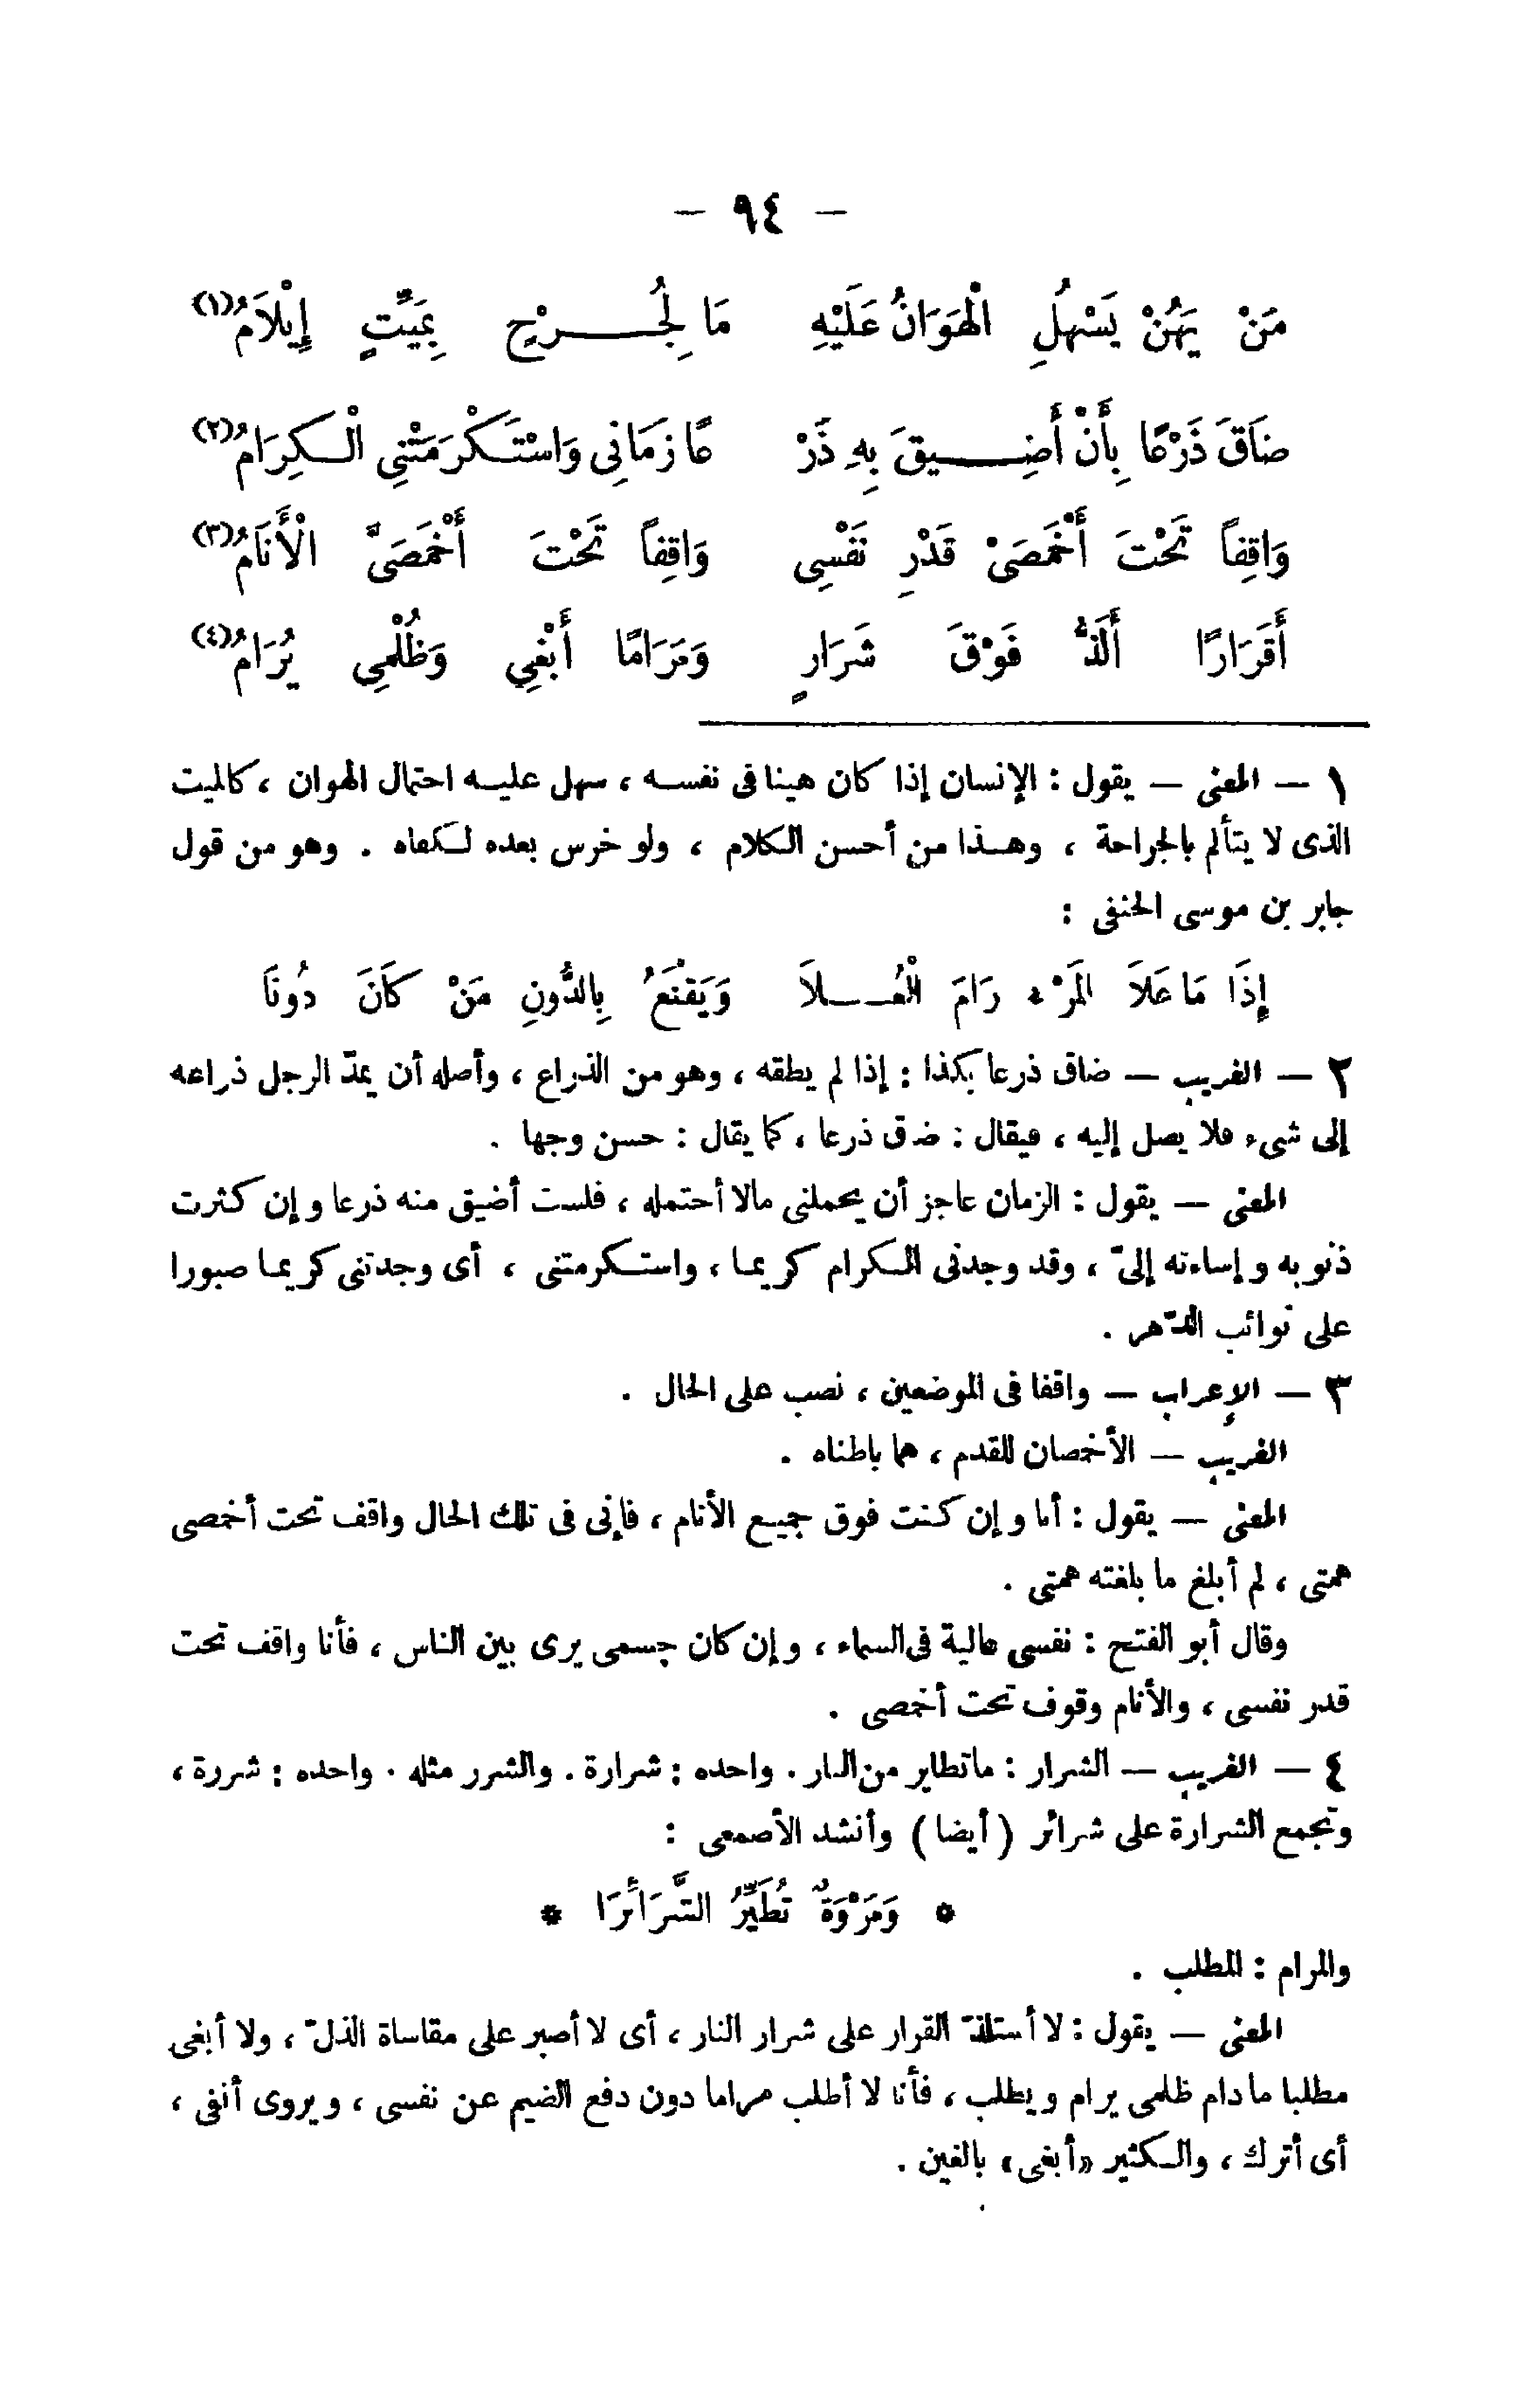 — ٩٤ —
مَنْ يَهُنْ يَسْهُلِ الْهَوَانُ عَلَيْهِ مَا لِجُــرْحٍ بِمَيِّتٍ إِيْلَامُ (١)
ضَاقَ ذَرْعًا بِأَنْ أَضِــيقَ بِهِ ذَرْ عًا زَمَانِى وَاسْتَكْرَمَتْنِى الْكِرَامُ (٢)
وَاقِفاً تَحْتَ أَخْمَصَىْ قَدْرِ نَفْسِى وَاقِفاً تَحْتَ أَخْمَصَىَّ الْأَنَامُ (٣)
أَقَرَارًا أَلَذُّ فَوْقَ شَرَارٍ وَمَرَامًا أَبْغِي وَظُلْمِى يُرَامُ (٤)
١ — المعنى — يقول : الإنسان إذا كان هينا فى نفسه ، سهل عليه احتمال الهوان ، كالميت
الذى لا يتألم بالجراحة ، وهذا من أحسن الكلام ، ولو خرس بعده لكفاه . وهو من قول
جابر بن موسى الحنفى :
إِذَا مَا عَلَا المَرْءُ رَامَ الْعُــلَا وَيَقْنَعُ بِالدُّونِ مَنْ كَانَ دُونَا
٢ — الغريب — ضاق ذرعا بكذا : إذا لم يطقه ، وهو من الذراع ، وأصله أن يمدّ الرجل ذراعه
إلى شىء فلا يصل إليه ، فيقال : ضاق ذرعا ، كما يقال : حسن وجها .
المعنى — يقول : الزمان عاجز أن يحملنى مالا أحتمله ، فلست أضيق منه ذرعا وإن كثرت
ذنوبه وإساءته إلىّ ، وقد وجدنى الكرام كريما ، واستكرمتنى ، أى وجدتنى كريما صبورا
على نوائب الدّهر .
٣ — الإعراب — واقفا فى الموضعين ، نصب على الحال .
الغريب — الأخمصان للقدم ، هما باطناه .
المعنى — يقول : أنا وإن كنت فوق جميع الأنام ، فإنى فى تلك الحال واقف تحت أخمصى
همتى ، لم أبلغ ما بلغته همتى .
وقال أبو الفتح : نفسى عالية فى السماء ، وإن كان جسمى يرى بين الناس ، فأنا واقف تحت
قدر نفسى ، والأنام وقوف تحت أخمصى .
٤ — الغريب — الشرار : ماتطاير من النار . واحده : شرارة . والشرر مثله . واحده : شررة ،
وتجمع الشرارة على شرائر ( أيضا ) وأنشد الأصمعى :
* وَمَرْوَةٌ تُطَيِّرُ الشَّرَائِرَا *
والمرام : المطلب .
المعنى — يقول : لا أستلذّ القرار على شرار النار ، أى لا أصبر على مقاساة الذلّ ، ولا أبغى
مطلبا ما دام ظلمى يرام ويطلب ، فأنا لا أطلب مراما دون دفع الضيم عن نفسى ، ويروى أنفى ،
أى أترك ، والكثير «أبغى» بالغين .